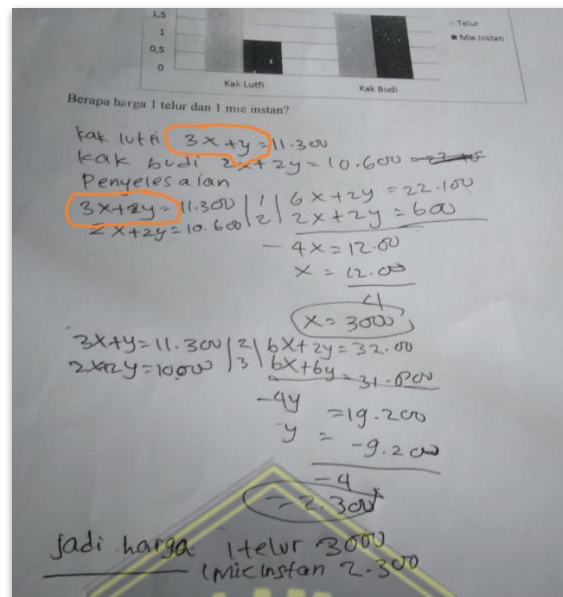 1,5
1
0,5
0
Telur
Mie Instan
Kak Lutfi
Kak Budi
Berapa harga 1 telur dan 1 mie instan?
Kak lutfi 3x+y=11.300
kak budi 2x+2y=10.600
Penyelesaian
3x+2y=11.300 | 1 | 6x+2y=22.100
2x+2y=10.600 | 2 | 2x+2y=600
- 4x=12.00
x = 12.00
4
x=3000
3x+y=11.300 | 2 | 6x+2y=32.00
2x+2y=10.000 | 3 | 6x+6y=31.800
-4y = 19.200
y = -9.200
-4
= 2.300
jadi harga 1 telur 3000
1 mie instan 2.300